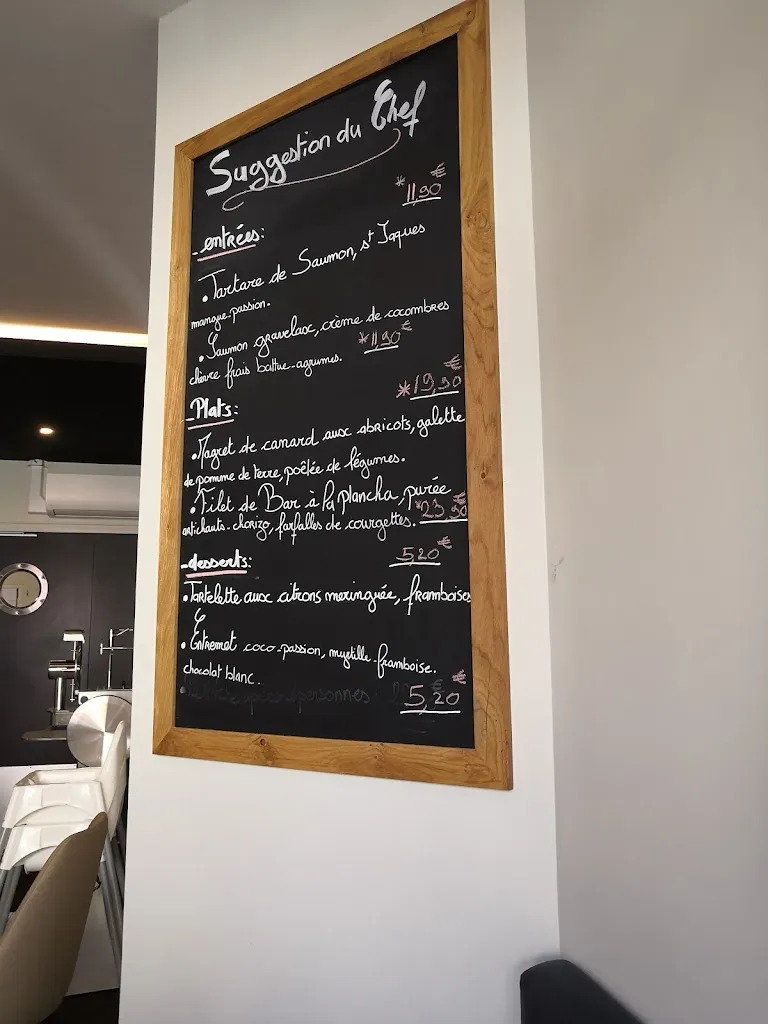 Suggestion du Chef
*11,90€
- entrées:
• Tartare de Saumon, st Jaques
mangue-passion.
• Saumon gravelax, crème de cocombres
*11,90€
chèvre frais battue-agrumes.
*19,90€
- Plats:
• Magret de canard aux abricots, galette
de pomme de terre, poêlée de légumes.
• Filet de Bar à la plancha, purée
*23,90€
artichauts-chorizo, farfalles de courgettes.
5,20€
- desserts:
• Tartelette aux citrons meringuée, framboises
• Entremet coco-passion, myrtille-framboise.
chocolat blanc.
5,20€